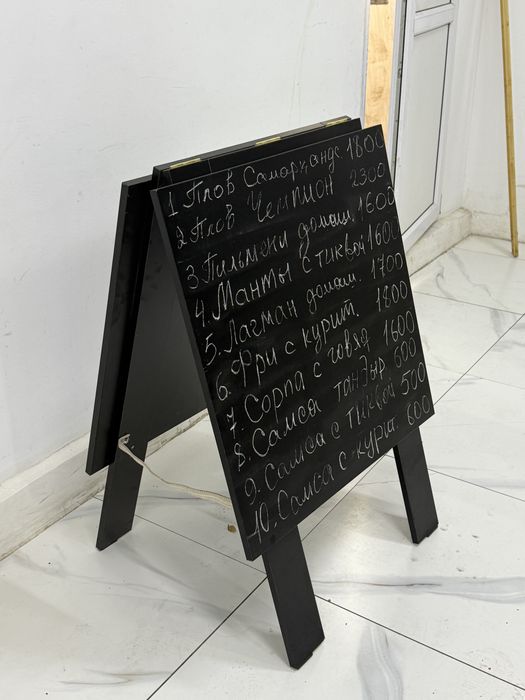 1 Плов Самарқандс. 1800
2 Плов Чемпион 2300
3 Пильмени домаш. 1600
4. Манты с тиквой 1600
5. Лагман домаш. 1700
6. Фри с курит. 1800
7. Сорпа с говяд 1600
8. Самса тандыр 600
9. Самса с тиквой 500
10. Самса с курит. 600